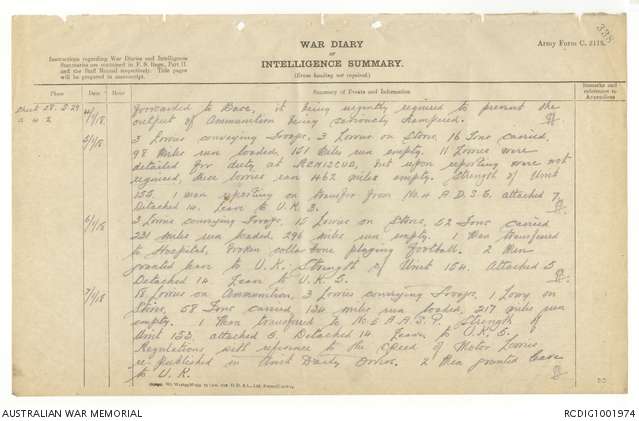 338
WAR DIARY
OR
INTELLIGENCE SUMMARY.
(Erase heading not required.)
Army Form C. 2118.
Instructions regarding War Diaries and Intelligence
Summaries are contained in F. S. Regs., Part II.
and the Staff Manual respectively. Title pages
will be prepared in manuscript.
Place
Date
Hour
Summary of Events and Information
Remarks and
references to
Appendices
Sheet 28. S.29
4/1/18 forwarded to Base, it being urgently required to prevent the
output of Ammunition being seriously hampered.
5/1/18 3 Lorries conveying Troops. 3 Lorries on Stone, 16 Tons carried.
98 miles run loaded, 151 miles run empty. 11 Lorries were
detailed for duty at but upon reporting were not
required, these lorries ran 462 miles empty. Strength of Unit
155. 1 man reporting on transfer from No. 4 A.D.S.C. attached 7
Detached 14. Leave to U.K. 3.
6/1/18 3 Lorries conveying Troops. 15 Lorries on Stone, 52 Tons carried
231 miles run loaded, 296 miles run empty. 1 Man transferred
to Hospital, broken collar bone playing football. 2 Men
granted leave to U.K. Strength of Unit 154. Attached 5
Detached 14 Leave to U.K. 5.
7/1/18 18 Lorries on Ammunition, 3 Lorries conveying Troops, 1 Lorry on
Stone, 58 Tons carried, 134 miles run loaded, 217 miles run
empty. 1 Man transferred to No 5 A.A.S.P. Strength of
Unit 153. attached 5. Detached 14 Leave to U.K. 5.
Regulations with reference to the speed of Motor Lorries
re-published in Unit Daily Orders. 2 Men granted leave
to U.K.
AUSTRALIAN WAR MEMORIAL
RCDIG1001974